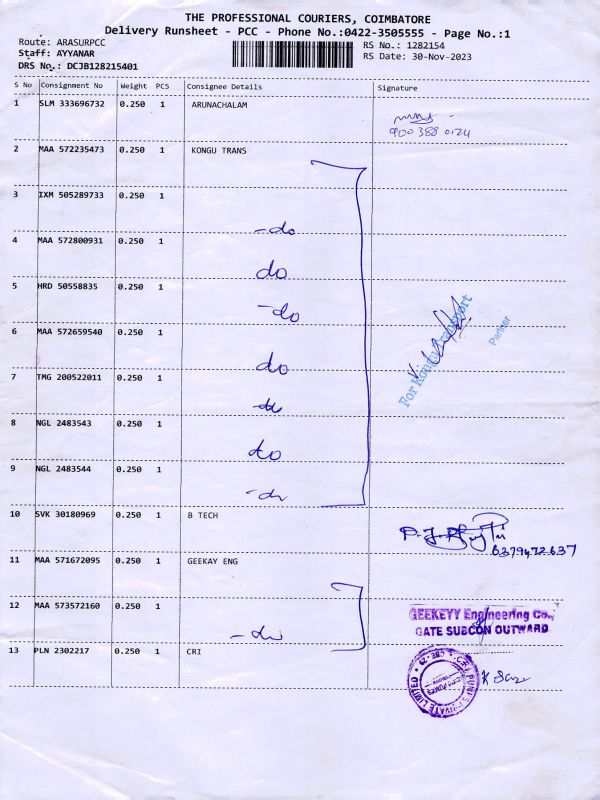 THE PROFESSIONAL COURIERS, COIMBATORE
Delivery Runsheet - PCC - Phone No.:0422-3505555 - Page No.:1
Route: ARASURPCC
Staff: AYYANAR
DRS No.: DCJB128215401
RS No.: 1282154
RS Date: 30-Nov-2023
S No Consignment No Weight PCS Consignee Details Signature
1 SLM 333696732 0.250 1 ARUNACHALAM
900 388 0124
2 MAA 572235473 0.250 1 KONGU TRANS
3 IXM 505289733 0.250 1
-do
4 MAA 572800931 0.250 1
do
5 HRD 50558835 0.250 1
-do
6 MAA 572659540 0.250 1
do
For Kongu Transport
Partner
7 TMG 200522011 0.250 1
-do
8 NGL 2483543 0.250 1
do
9 NGL 2483544 0.250 1
-do
10 SVK 30180969 0.250 1 B TECH
6379472637
11 MAA 571672095 0.250 1 GEEKAY ENG
12 MAA 573572160 0.250 1
-do
GEEKEYY Engineering Co.,
GATE SUBCON OUTWARD
13 PLN 2302217 0.250 1 CRI
PRIVATE LIMITED